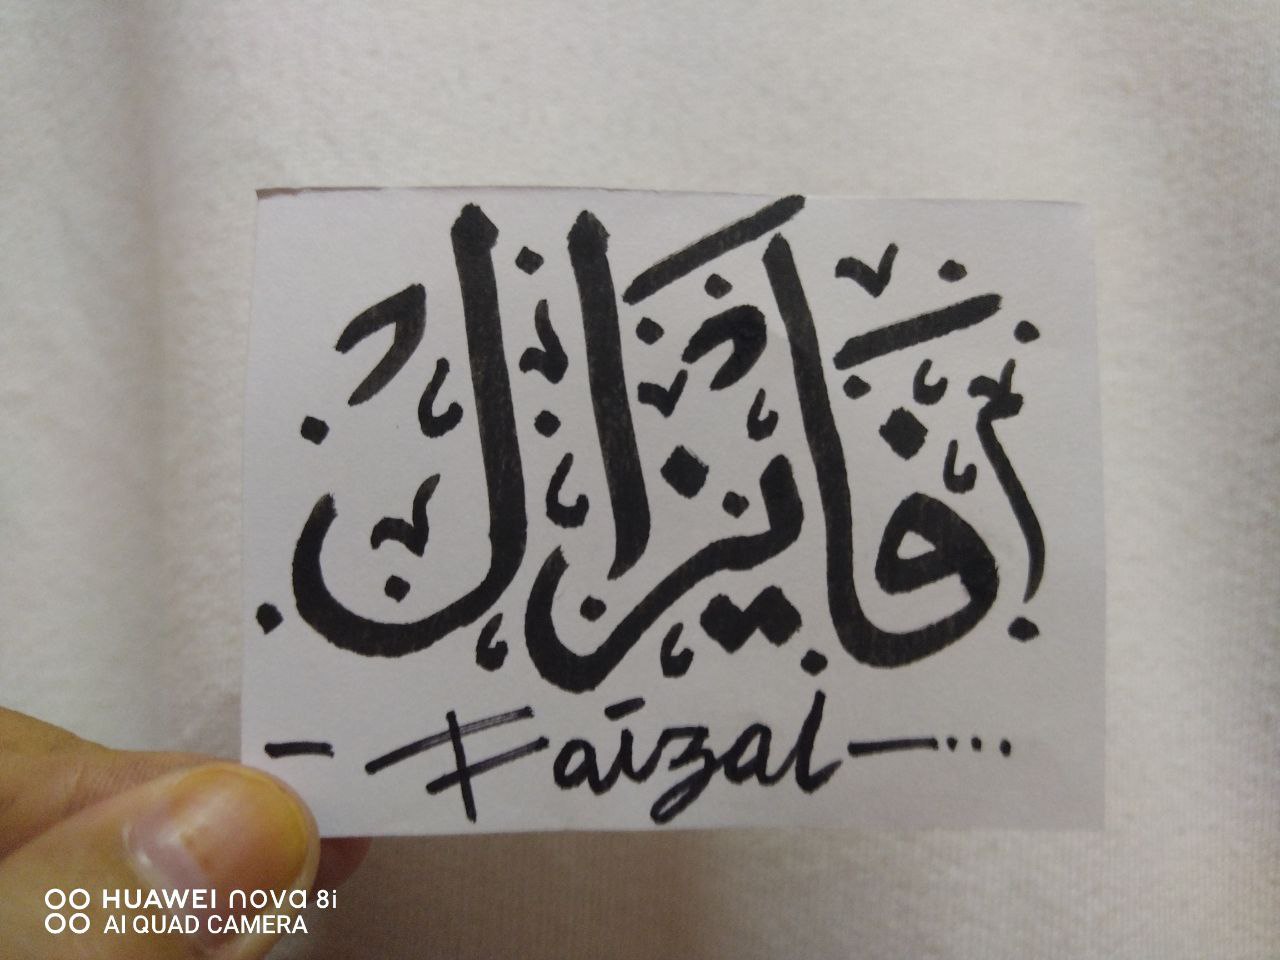 فايزال
- Faizal - ...
HUAWEI nova 8i
AI QUAD CAMERA